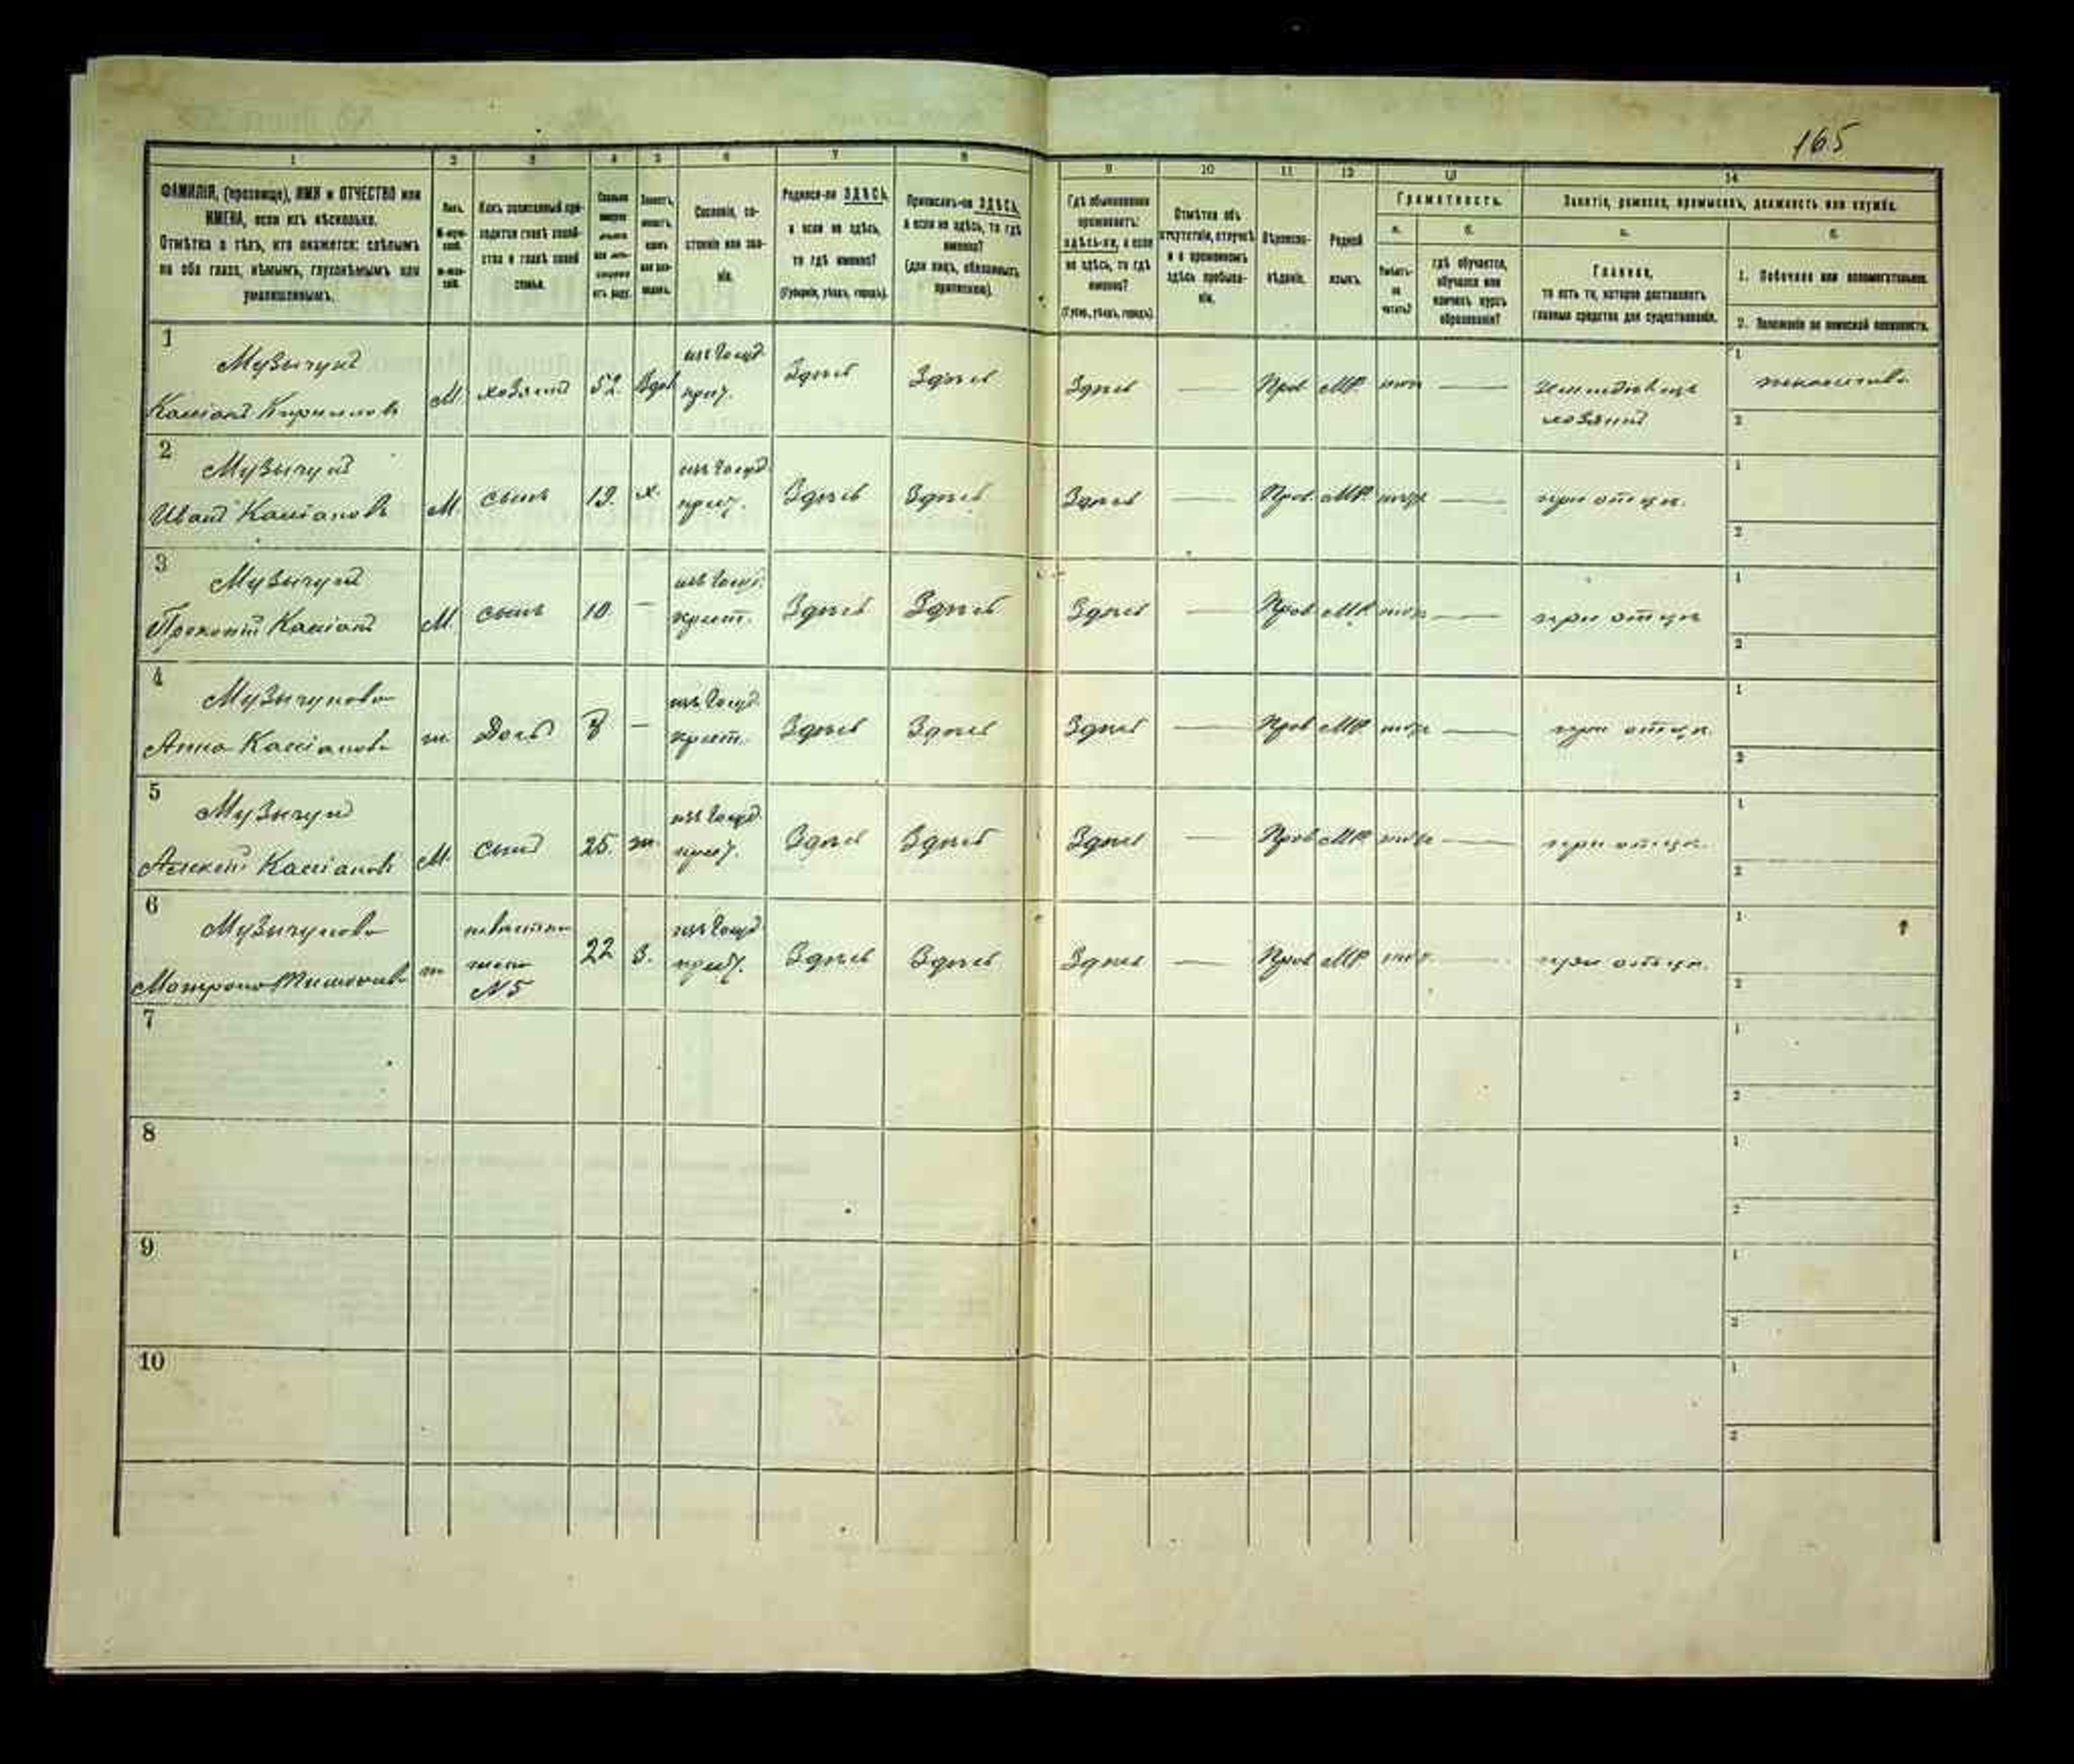 165
1 2 3 4 5 6 7 8 9 10 11 12 13 14
ФАМИЛІЯ, (прозвище), ИМЯ и ОТЧЕСТВО или ИМЕНА, если ихъ нѣсколько.
Отмѣтка о тѣхъ, кто окажется: слѣпымъ на оба глаза, нѣмымъ, глухонѣмымъ или умалишеннымъ.
Полъ.
М-муж-ской.
Ж-жен-скій.
Какъ записанный при-ходится главѣ хозяй-ства и главѣ своей семьи.
Сословіе, со-стояніе или зва-ніе.
Родился-ли ЗДѢСЬ, а если не здѣсь, то гдѣ именно?
(Губернія, уѣздъ, городъ).
Приписанъ-ли ЗДѢСЬ, а если не здѣсь, то гдѣ именно?
(для лицъ, обязанныхъ припискою).
Гдѣ обыкновенно проживаетъ: здѣсь-ли, а если не здѣсь, то гдѣ именно?
(Губер., уѣздъ, городъ).
Отмѣтка объ отсутствіи, отлучкѣ и о временномъ здѣсь пребыва-ніи.
Вѣроиспо-вѣданіе.
Родной языкъ.
Грамотность.
а. б.
Умѣетъ-ли читать?
гдѣ обучается, обучался или кончилъ курсъ образованія?
Занятіе, ремесло, промыселъ, должность или служба.
а. б.
Главное,
то есть то, которое доставляетъ главныя средства для существованія.
1. Побочное или вспомогательное.
2. Положеніе по воинской повинности.
1 Музычукъ
Касіянъ Кириловъ М. хозяинъ 52. Вдов изъ Госуд. крест. Здѣсь Здѣсь Здѣсь — Прав МР. нѣтъ — Земледѣлецъ хозяинъ 1 2
2 Музычукъ
Иванъ Касіановъ М. сынъ 19. х. изъ Госуд. крест. Здѣсь Здѣсь Здѣсь — Прав. МР. нѣтъ — при отцѣ. 1 2
3 Музычукъ
Прокопій Касіянъ М. сынъ 10. — изъ Госуд. крест. Здѣсь Здѣсь Здѣсь — Прав МР. нѣтъ — при отцѣ 1 2
4 Музычукова
Анна Касіанова ж. Дочь 8 — изъ Госуд. крест. Здѣсь Здѣсь Здѣсь — Прав МР нѣтъ — при отцѣ. 1 2
5 Музычукъ
Алексѣй Касіановъ М. сынъ 25. ж. изъ Госуд. крест. Здѣсь Здѣсь Здѣсь — Прав МР нѣтъ — при отцѣ. 1 2
6 Музычукова
Матрона ж невѣстка жена №5 22 З. изъ Госуд. крест. Здѣсь Здѣсь Здѣсь — Прав МР нѣтъ — при отцѣ. 1 2
7 1 2
8 1 2
9 1 2
10 1 2